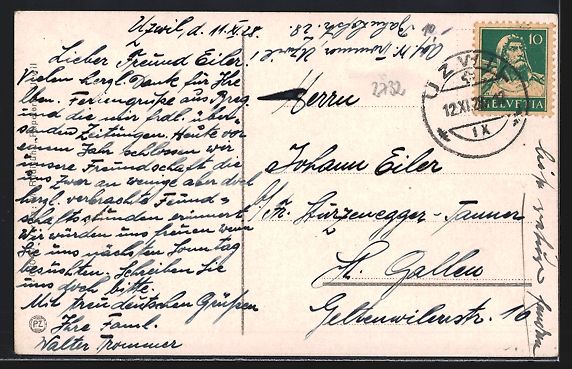 Uzwil, d. 11.XI.28.
Lieber Freund Eiler!
Vielen herzl. Dank für Ihre
lben. Feriengrüße aus Bregz
und die mir frdl. über-
sandten Zeitungen. Heute vor
einem Jahr schlossen wir
unsere Freundschaft die
uns zwar an wenige aber doch
herzl. verbrachte Freund-
schaftsstunden erinnert.
Wir würden uns freuen wenn
Sie uns nächsten Sonntag
besuchten. Schreiben Sie
uns doch bitte.
Mit treudeutschen Grüßen
Ihre Faml.
Walter Trommer
Abs. W. Trommer Uzwil
Bahnhofstr. 28.
2732
Herrn
Johann Eiler
b/Fr. Sturzenegger-Tanner
St. Gallen
Geltenwilenstr. 16
10
HELVETIA
UZWIL
12.XI.28
IX
PZ